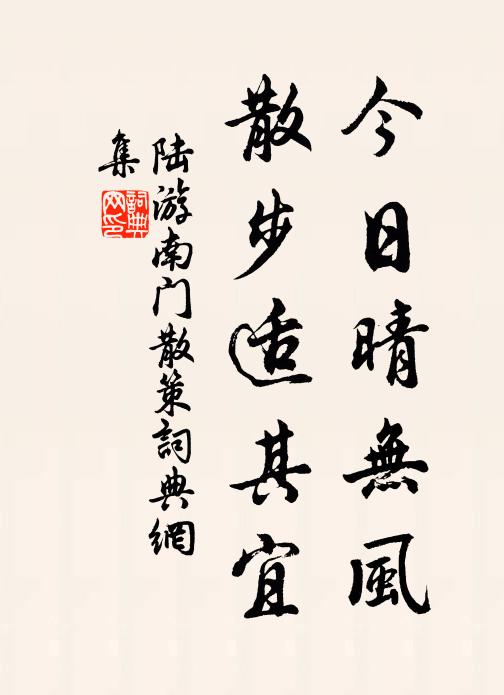 今日晴無風
散步适其宜
陆游南门散策詞典網
集
詞典
网印